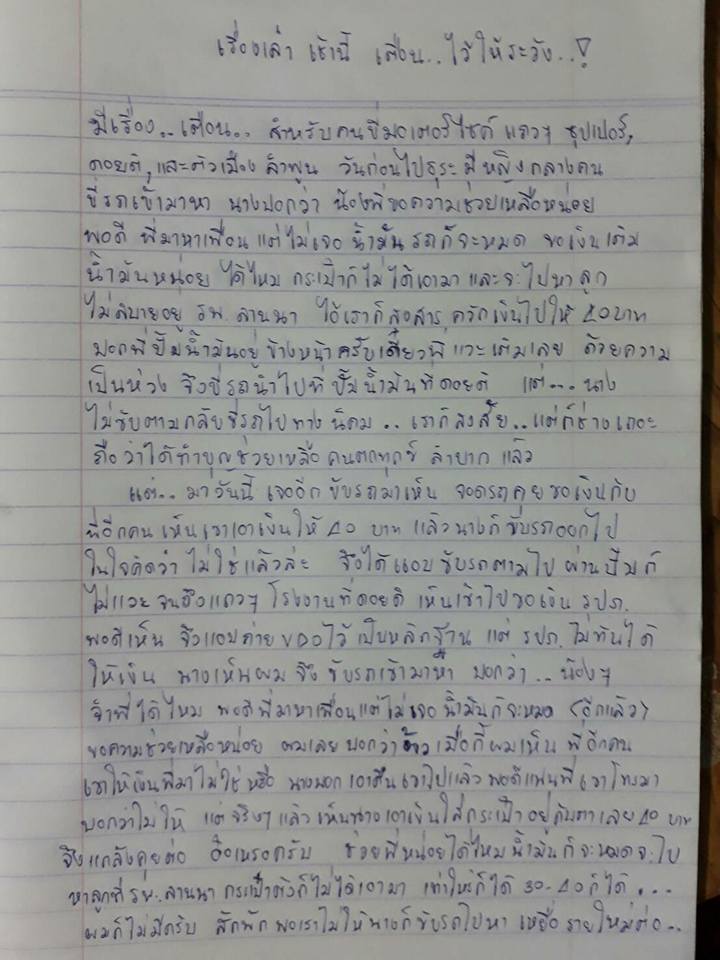 เรื่องเล่า เช้านี้ เตือน.. ไว้ให้ระวัง..!
มีเรื่อง.. เตือน.. สำหรับคนขี่มอเตอร์ไซค์ แถวๆ ซุปเปอร์,
ดอยติ, และตัวเมือง ลำพูน วันก่อนไปธุระ มีหญิงกลางคน
ขี่รถเข้ามาหา นางบอกว่า น้องพี่ขอความช่วยเหลือหน่อย
พอดี พี่มาหาเพื่อน แต่ไม่เจอ น้ำมัน รถก็จะหมด ขอเงินเติม
น้ำมันหน่อย ได้ไหม กระเป๋าก็ไม่ได้เอามา และจะไปหาลูก
ไม่สบายอยู่ รพ. ลานนา ไอ้เราก็สงสาร ควักเงินไปให้ 40 บาท
บอกพี่ปั๊มน้ำมันอยู่ข้างหน้าครับเดี๋ยวพี่แวะเติมเลย ด้วยความ
เป็นห่วง จึงขี่รถนำไปที่ปั๊มน้ำมันที่ดอยติ แต่... นาง
ไม่ขับตามกลับขี่รถไปทางนิคม .. เราก็สงสัย .. แต่ก็ช่างเถอะ
ถือว่าได้ทำบุญช่วยเหลือ คนตกทุกข์ ลำบาก แล้ว
แต่.. มาวันนี้ เจออีก ขับรถมาเห็น จอดรถคุยขอเงินกับ
พี่อีกคน เห็นเขาเอาเงินให้ 40 บาท แล้วนางก็ขับรถออกไป
ในใจคิดว่า ไม่ใช่แล้วล่ะ จึงได้แอบขับรถตามไป ผ่านปั๊มก็
ไม่แวะ จนถึงแถวๆ โรงงานที่ดอยติ เห็นเข้าไปขอเงิน รปภ.
พอดีเห็น จึงแอบถ่าย VDO ไว้ เป็นหลักฐาน แต่ รปภ. ไม่ทันได้
ให้เงิน นางเห็นผม จึง ขับรถเข้ามาหา บอกว่า .. น้องๆ
จำพี่ได้ไหม พอดีพี่มาหาเพื่อนแต่ไม่เจอ น้ำมันก็จะหมด (อีกแล้ว)
ขอความช่วยเหลือหน่อย ผมเลยบอกว่าอ้าว เมื่อกี้ผมเห็น พี่อีกคน
เขาให้เงินพี่มาไม่ใช่ หรือ นางบอก เอาคืนเขาไปแล้ว พอดีแฟนพี่เขาโทรมา
บอกว่าไม่ให้ แต่จริงๆ แล้ว เห็นนางเอาเงินใส่กระเป๋า อยู่กับตาเลย 40 บาท
จึงแกล้งคุยต่อ อ๋อเหรอครับ ช่วยพี่หน่อยได้ไหมน้ำมันก็จะหมดจะไป
หาลูกที่ รพ. ลานนา กระเป๋าตังก็ไม่ได้เอามา เท่าไหร่ก็ได้ 30-40 ก็ได้ ...
ผมก็ไม่มีครับ สักพัก พอเราไม่ให้นางก็ขับรถไปหา เหยื่อ รายใหม่ต่อ...